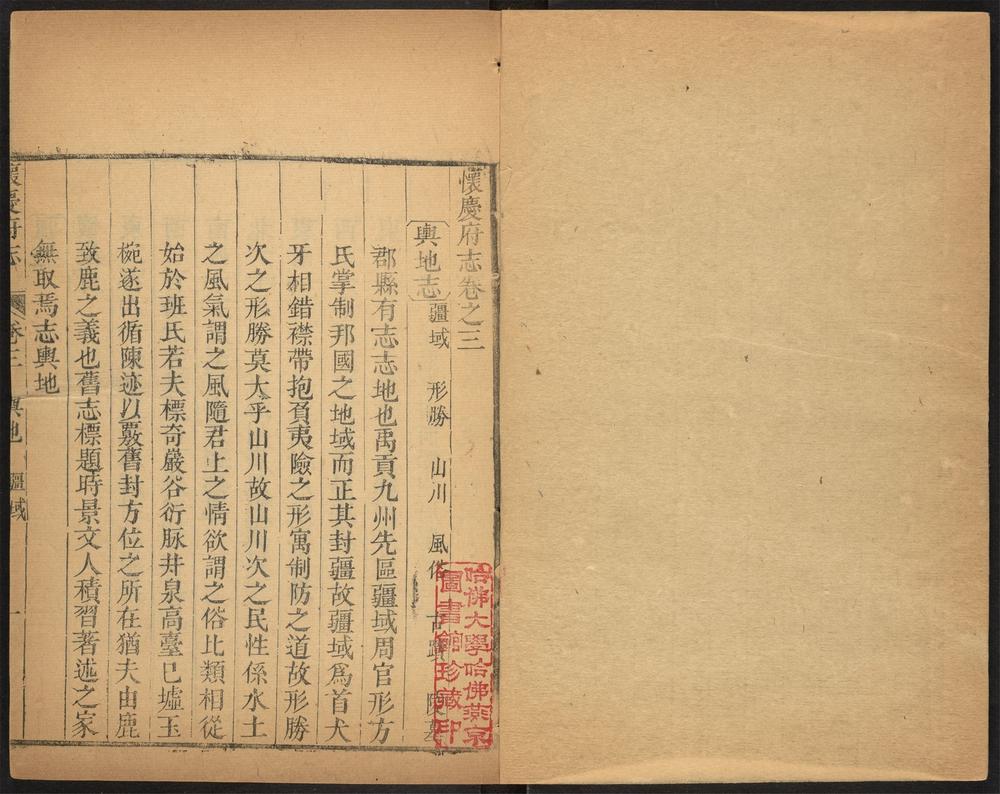 懷慶府志卷之三
輿地志 疆域 形勝 山川 風俗 古蹟 陵墓
郡縣有志志地也禹貢九州先區疆域周官形方
氏掌制邦國之地域而正其封疆故疆域爲首犬
牙相錯襟帶抱負夷險之形寓制防之道故形勝
次之形勝莫大乎山川故山川次之民性係水土
之風氣謂之風隨君上之情欲謂之俗比類相從
始於班氏若夫標奇嚴谷衍脉井泉高臺已墟玉
椀遂出循陳迹以覈舊封方位之所在猶夫由鹿
致鹿之義也舊志標題時景文人積習著述之家
無取焉志輿地
懷慶府志 卷三 輿地 疆域 一
哈佛大學哈佛燕京
圖書館珍藏印